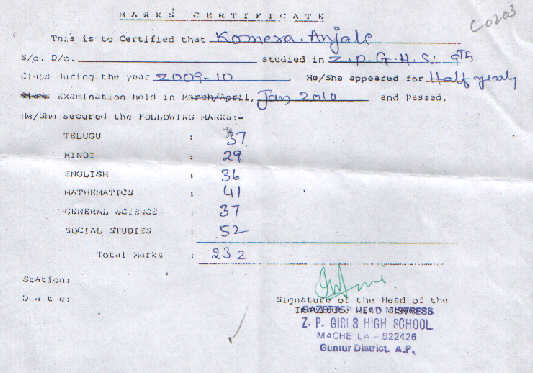 MARKS CERTIFICATE
C0203
This is to Certified that Komera. Anjali
S/o. D/o. studied in Z.P.G.H.S. 9th
Class during the year 2009-10 He/She appeared for Half yearly
Examination held in March/April, Jan 2010 and Passed.
He/She secured the FOLLOWING MARKS:-
TELUGU : 37
HINDI : 29
ENGLISH : 36
MATHEMATICS : 41
GENERAL SCIENCE : 37
SOCIAL STUDIES : 52
Total Marks : 232
Station:
Date:
Signature of the Head of the
HEAD MISTRESS
Z. P. GIRLS HIGH SCHOOL
MACHERLA - 522426
Guntur District, A.P.